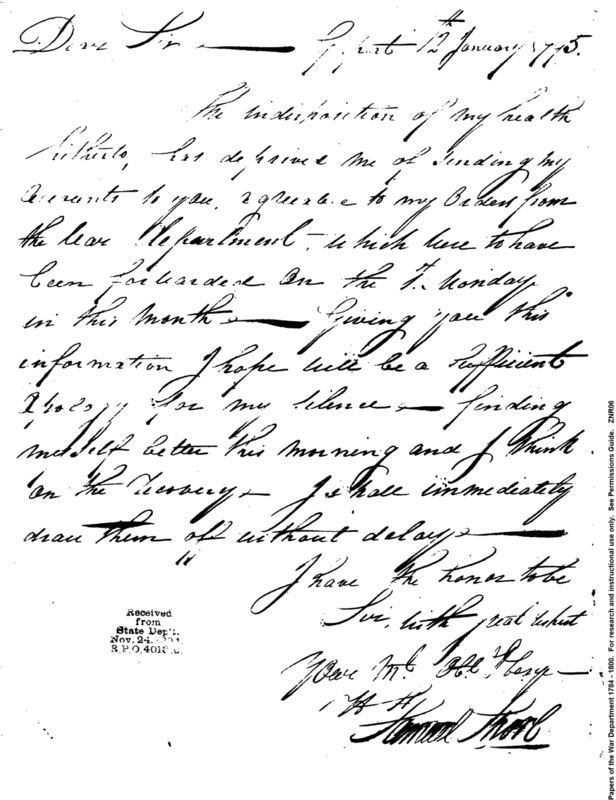 Dear Sir — 12th January 1795.
The indisposition of my health
hitherto, has deprived me of sending my
accounts to you, agreeable to my Orders from
the War Department, which were to have
been forwarded on the 1st Monday
in this Month — Giving you this
information I hope will be a sufficient
Apology for my silence — finding
myself better this morning and I think
on the Recovery — I shall immediately
draw them off without delay —
I have the honor to be
Sir, with great respect
Your Mt Obt
Samuel
Received
from
State Dep't.
Nov. 24.
R.P.O.
Papers of the War Department 1784 - 1800. For research and instructional use only. See Permissions Guide. ZNR06